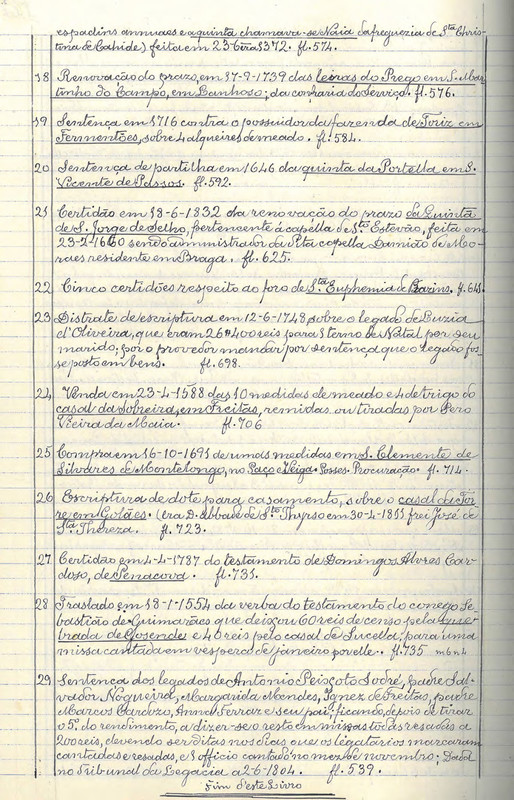 espadins annuaes e a quinta chamava-se Naia da freguezia de Sta Chris-
tina de Cahide) feita em 23-6 era 1372. fl. 574.
18 Renovação do prazo, em 17-9-1739 das leiras do Prego em S. Mar-
tinho do Campo, em Lanhoso; da confraria do Serviço. fl. 576.
19 Sentença em 1716 contra o possuidor da fazenda de Toriz em
Fermentões, sobre 4 alqueires de meado. fl. 584.
20 Sentença de partilha em 1646 da quinta da Portella em S.
Vicente de Passos. fl. 592.
21 Certidão em 18-6-1832 da renovação do prazo da Quinta
de S. Jorge de Selho, pertencente á capella de Sto Estevão, feita em
23-2-1660 sendo administrador da dita capella Damião de Mo-
raes residente em Braga. fl. 625.
22 Cinco certidões respeito do foro de Sta Euphemia de fl. 645.
23 Distrate de escriptura em 12-6-1748, sobre o legado de Luzia
d'Oliveira, que eram 26#400 reis para 1 terno de Natal por seu
marido, por o provedor mandar por sentença que o legado fos-
se posto em bens. fl. 698.
24 Venda em 23-4-1588 das 10 medidas de meado e 4 de trigo do
casal da Sobreira, em Freitas, remidas ou tiradas por Pero
Vieira da Maia. fl. 706
25 Compra em 16-10-1691 de umas medidas em S. Clemente de
Silvares de Montelongo, no Paço e Veiga. Posses. Procuração. fl. 714.
26 Escriptura de dote para casamento, sobre o casal da Tor-
re em Golães. (era D. Abbade de Sto Thyrso em 30-4-1811 frei José de
Sta Thereza. fl. 723.
27 Certidão em 4-4-1787 do testamento de Domingos Alvres Car-
doso, de Penacova. fl. 731.
28 Traslado em 18-1-1554 da verba do testamento do conego Se-
bastião de Guimarães que deixou 60 reis de censo pela que-
brada de Gosende e 40 reis pelo casal de Lucella, para uma
missa cantada em vespera de janeiro por elle. fl. 735
29 Sentença dos legados de Antonio Peixoto Sodré, padre Sal-
vador Nogueira, Margarida Mendes, Ignez de Freitas, padre
Marcos Cardoza, Anna Ferraz e seu pai; ficando, depois de tirar
o 5º. do rendimento, a dizer-se o resto em missas todas resadas a
200 reis, devendo ser ditas nos dias que os legatarios marcaram
cantadas e resadas, e 1 officio cantado no mez de novembro; Dada
no Tribunal da Legacia a 2-6-1804. fl. 539.
Fim d'este Livro